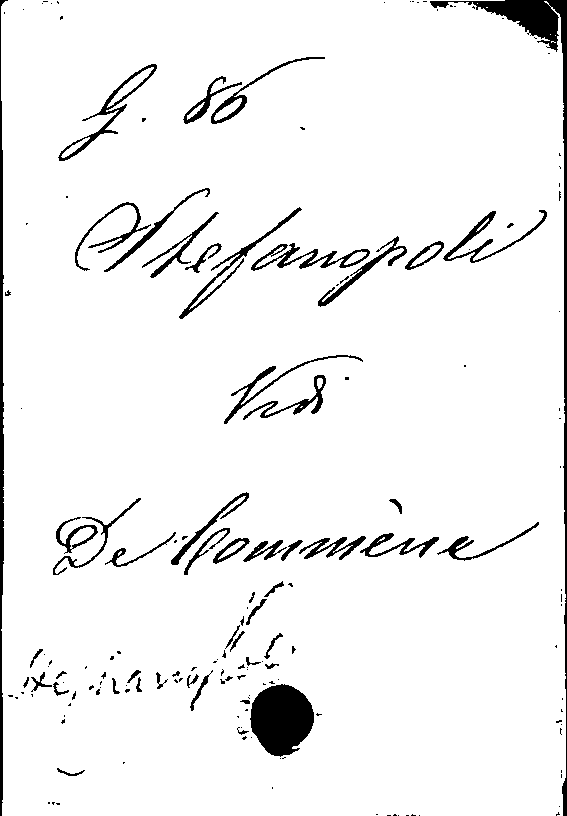 G. 86
Stefanopoli
Vidi
De Commène
Stephanopoli